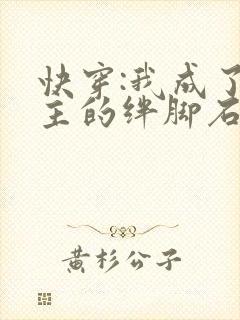 快穿:我成了
主的绊脚石
黄杉公子